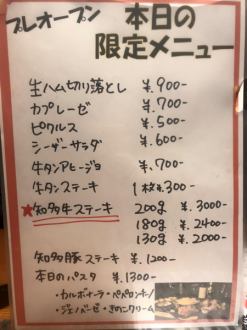 プレオープン
本日の
限定メニュー
生ハム切り落とし ¥.900-
カプレーゼ ¥.700-
ピクルス ¥.500-
シーザーサラダ ¥.600-
牛タンアヒージョ ¥.700-
牛タンステーキ 1枚¥.300-
★知多牛ステーキ 200g ¥.3000-
180g ¥.2400-
130g ¥.2000-
知多豚ステーキ ¥.1200-
本日のパスタ ¥.1300-
・カルボナーラ・ペペロンチーノ
・ジェノベーゼ・きのこクリーム